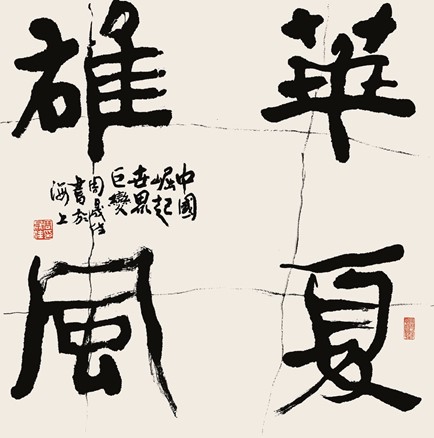 華夏
雄風
中國
崛起
世界
巨變
周
書於
海上